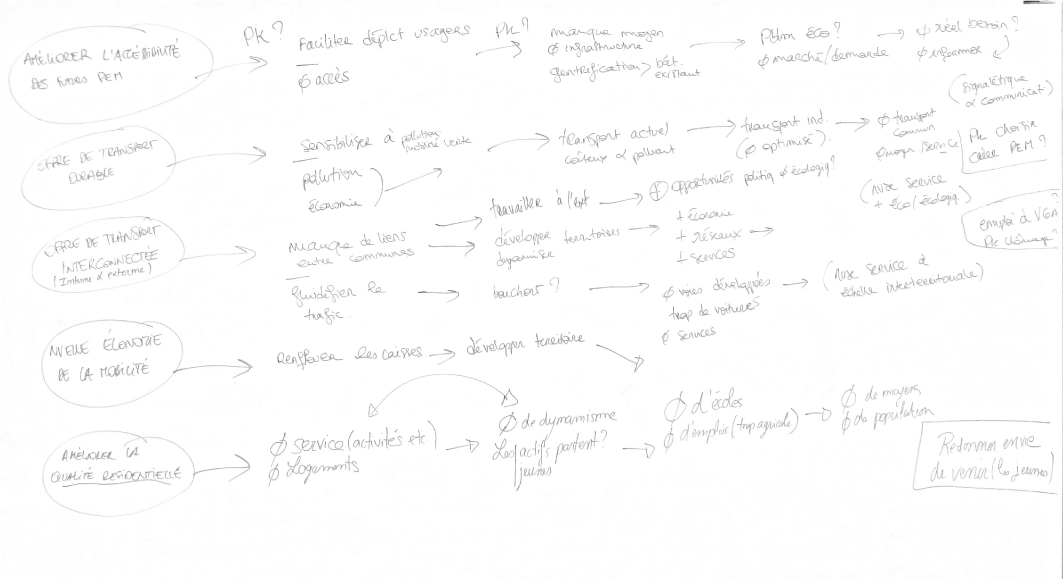 AMÉLIORER L'ACCÉSSIBILITÉ
DES futurs PEM
PK?
Faciliter déplct usagers
∅ accès
PK?
manque moyen
∅ infrastructure
gentrification > bât. existant
Pblm éco?
∅ marché/demande
∅ réel besoin?
∅ informer
(signalétique
& communicat°)
OFFRE DE TRANSPORT
DURABLE
Sensibiliser à pollution
mobilité verte
pollution
économie
transport actuel
coûteux & polluant
transport ind.
(∅ optimisé).
∅ transport
commun
∅ moyen/service
Pk choisir
créer PEM?
travailler à l'est
⊕ opportunités politiq ∅ écologiq?
(nvx service
+ éco/écologiq.
OFFRE DE TRANSPORT
INTERCONNECTÉE
(Interne & externe)
manque de liens
entre communes
développer territoires
dynamiser
+ économie
+ réseaux
+ services
emploi à VGA
Pk chômage?
fluidifier le
trafic.
bouchent?
∅ voies développées
trop de voitures
∅ services
(nvx service à
échelle interterritoriale)
NVELLE ÉCONOMIE
DE LA MOBILITÉ
Renflouer les caisses
développer territoire
AMÉLIORER LA
QUALITÉ RESIDENTIELLE
∅ service (activités etc)
∅ Logements
∅ de dynamisme
Les actifs partent?
jeunes
∅ d'écoles
∅ d'emplois (trop agricole)
∅ de moyens
∅ de population
Redonner envie
de venir (les jeunes)